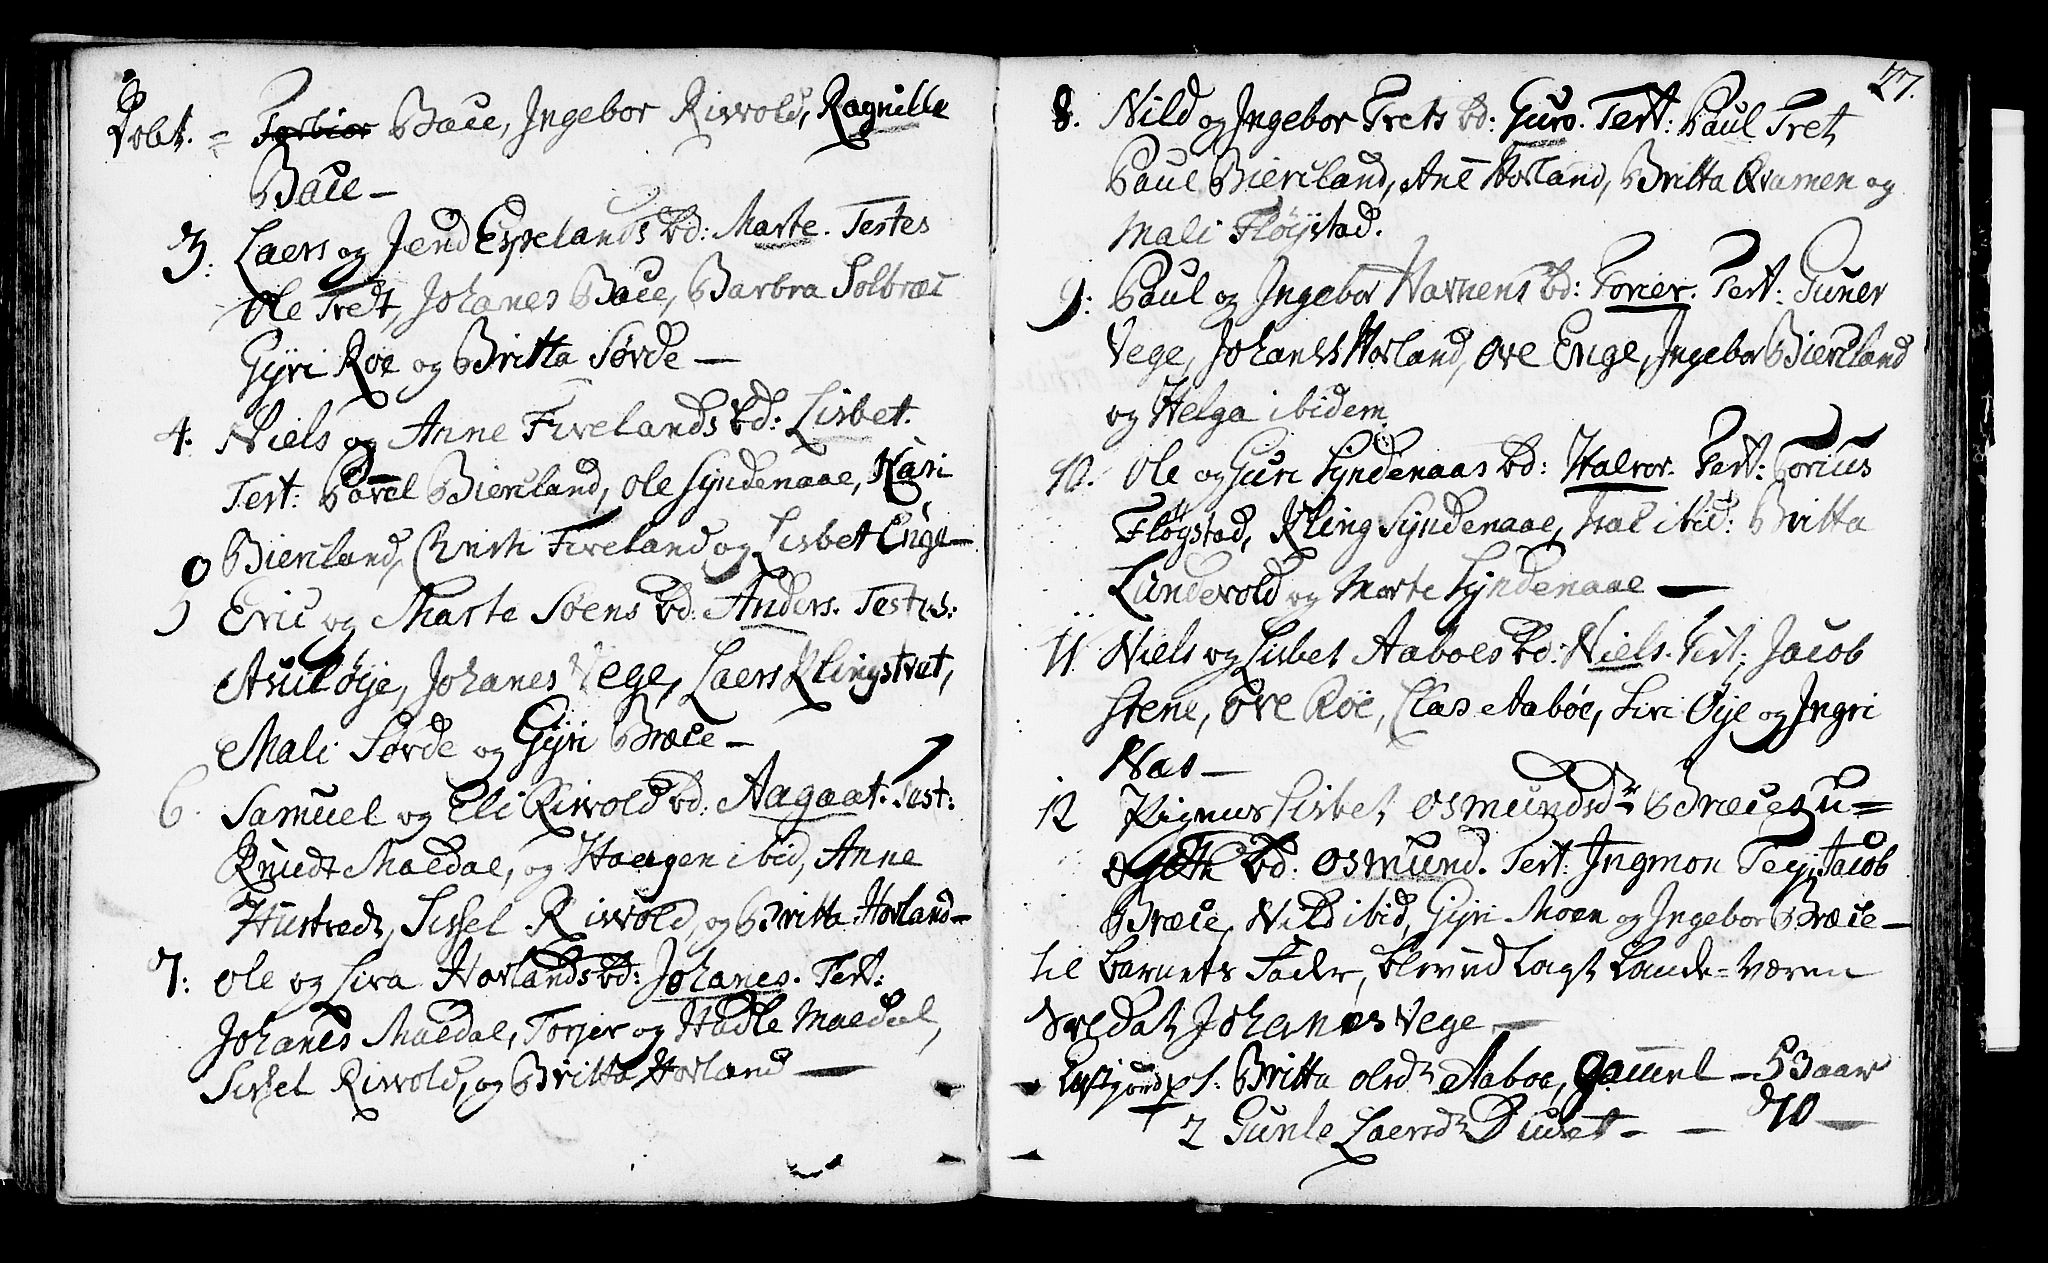 Dobt. = Torbior Bace, Ingebor Rivold, Ragnille
Bace —
3. Laers og Jend Espelands bd: Marte. Testes
Ole Tredt, Johanes Bace, Barbra Solbræc
Gÿri Roe og Britta Sørde —
4. Niels og Anne Fivelands bd: Lisbet.
Test: Povel Biercland, Ole Syndenaae, Kari
Biercland, Fiveland og Lisbet Enge —
5 Eric og Marte Søens bd: Anders. Testes:
Asul Øÿe, Johanes Vege, Laers Klingstvet,
Mali Sørde og Gÿri Bræce —
6. Samuel og Eli Rivold bd: Aagaat. Test:
Knudt Maedal, og Haagen ibid, Anne
Hustvedt, Sissel Rivold, og Britta Hovland —
7: Ole og Siva Hovlands bd: Johanes. Test:
Johanes Maedal, Torjer og Hadle Maedal,
Sissel Rivold, og Britta Hovland —
27.
8. Nild og Ingebor Trets bd: Guro. Test: Paul Tret
Paul Biercland, Ane Hovland, Britta Qvamen og
Mali Fløÿstad.
9: Paul og Ingebor Havnens bd: Torier. Test: Guner
Vege, Johanes Hovland, Ove Enge, Ingebor Biercland
og Helga ibidem
10. Ole og Guri Syndenaas bd: Halvor. Test: Torius
Fløgstad, Kling Syndenaae, Isal ibid: Britta
Lundevold og Marte Syndenaae —
11. Niels og Lisbet Aaboes bd: Niels. Test; Jacob
Stene, Ove Roe, Clas Aabøe, Siri Øÿe og Ingri
Nas —
12 Pigens Lisbet Osmundsdr Bræces u=
ægte bd: Osmund. Test: Ingmon Teÿ, Jacob
Bræce, Nild ibid, Gÿri Moen og Ingebor Bræce —
til barnets Fader, blev udlagt Lande-Væren
Soldat Johanes Vege —
1. Britta Olsdr Aaboe, gamel — 53 aar
2 Gunle Laersdr Duset — — 70 —